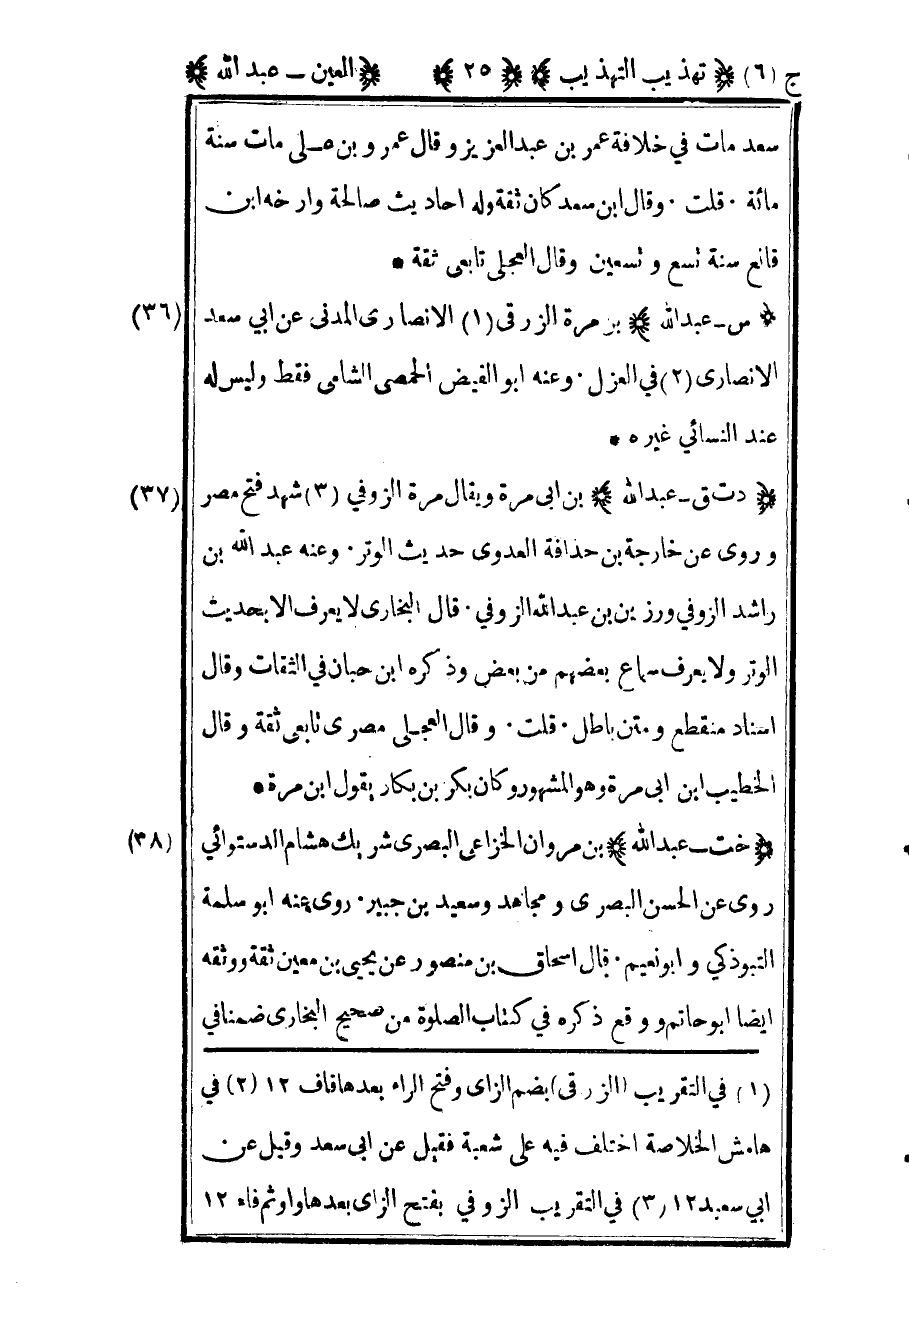 ج (٦) ﴿ تهذيب التهذيب ﴾ ﴿ ٢٥ ﴾ ﴿ العين ــ عبد الله ﴾
سعد مات في خلافة عمر بن عبد العزيز و قال عمرو بن علي مات سنة
مائة . قلت . وقال ابن سعد كان ثقة وله احاديث صالحة وارخه ابن
قانع سنة تسع و تسعين وقال العجلى تابعى ثقة *
(٣٦) ﴿ س ــ عبد الله ﴾ بن مرة الزرقى (١) الانصارى المدنى عن ابي سعد
الانصارى (٢) في العزل . وعنه ابو الفيض الحمصى الشامى فقط وليس له
عند النسائي غيره *
(٣٧) ﴿ د ت ق ــ عبد الله ﴾ بن ابى مرة ويقال مرة الزوفي (٣) شهد فتح مصر
و روى عن خارجة بن حذافة العدوى حديث الوتر . وعنه عبد الله بن
راشد الزوفي ورزين بن عبد الله الزوفي . قال البخارى لا يعرف الا بحديث
الوتر ولا يعرف سماع بعضهم من بعض وذكره ابن حبان في الثقات وقال
اسناد منقطع و متن باطل . قلت . و قال العجلى مصرى تابعى ثقة و قال
الخطيب ابن ابى مرة وهو المشهور وكان بكر بن بكار يقول ابن مرة *
(٣٨) ﴿ خت ــ عبد الله ﴾ بن مروان الخزاعى البصرى شريك هشام الدستوائي
روى عن الحسن البصرى و مجاهد وسعيد بن جبير . روى عنه ابو سلمة
التبوذكي و ابو نعيم . قال اسحاق بن منصور عن يحيى بن معين ثقة ووثقه
ايضا ابو حاتم و وقع ذكره في كتاب الصلوة من صحيح البخارى ضمنا في
(١) في التقريب (الزرقى) بضم الزاى وفتح الراء بعدها قاف ١٢ (٢) في
هامش الخلاصة اختلف فيه على شعبة فقيل عن ابى سعد وقيل عن
ابي سعيد ١٢ (٣) في التقريب الزوفي بفتح الزاى بعدها واو ثم فاء ١٢